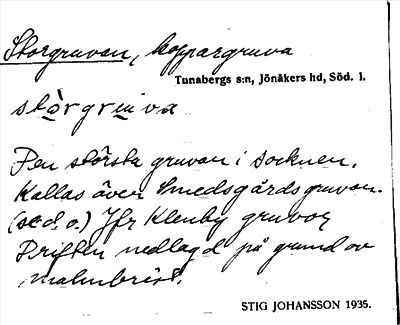 Storgruvan, koppargruva
Tunabergs s:n, Jönåkers hd, Söd. l.
stòrgruva
Den största gruvan i socknen.
Kallas även Smedsgårdsgruvan.
(se d. o.) Jfr Klenby gruvor
Driften nedlagd på grund av
malmbrist.
STIG JOHANSSON 1935.